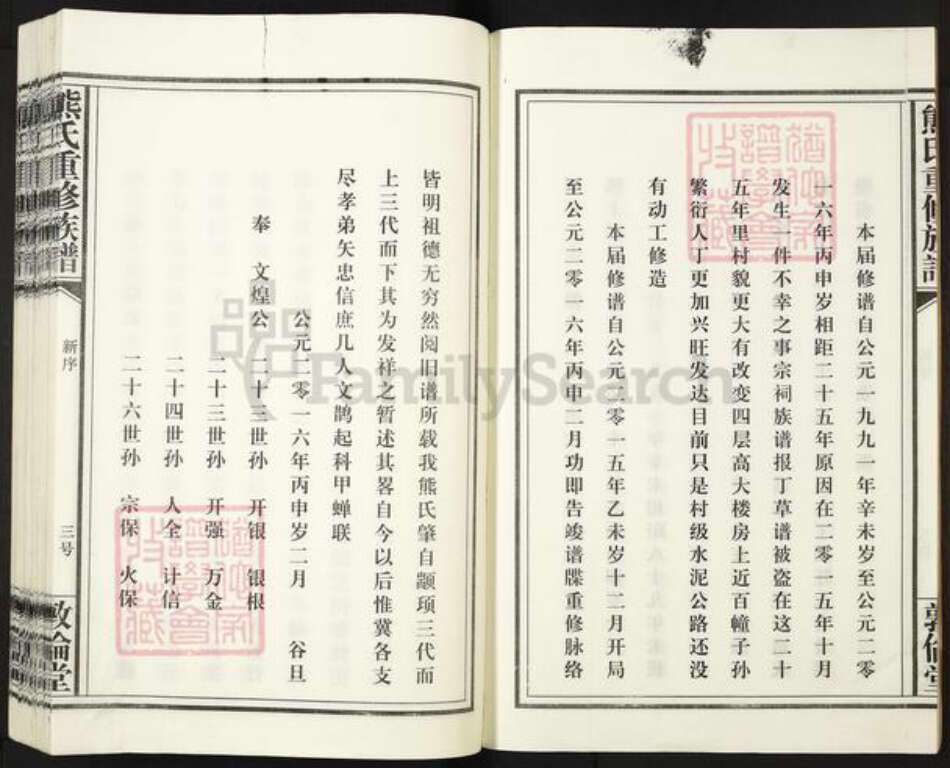 熊氏重修族谱
敦伦堂
本届修谱自公元一九九一年辛未岁至公元二零
一六年丙申岁相距二十五年原因在二零一五年十月
发生一件不幸之事宗祠族谱报丁草谱被盗在这二十
五年里村貌更大有改变四层高大楼房上近百幢子孙
繁衍人丁更加兴旺发达目前只是村级水泥公路还没
有动工修造
本届修谱自公元二零一五年乙未岁十二月开局
至公元二零一六年丙申二月功即告竣谱牒重修脉络
皆明祖德无穷然阅旧谱所载我熊氏肇自颛顼三代而
上三代而下其为发祥之暂述其畧自今以后惟冀各支
尽孝弟矢忠信庶几人文鹊起科甲蝉联
公元二零一六年丙申岁二月 谷旦
奉 文煌公 二十三世孙 开银 银根
二十三世孙 开强 万金
二十四世孙 人全 计信
二十六世孙 宗保 火保
熊氏重修族谱
新序
三号
敦倫堂
FamilySearch